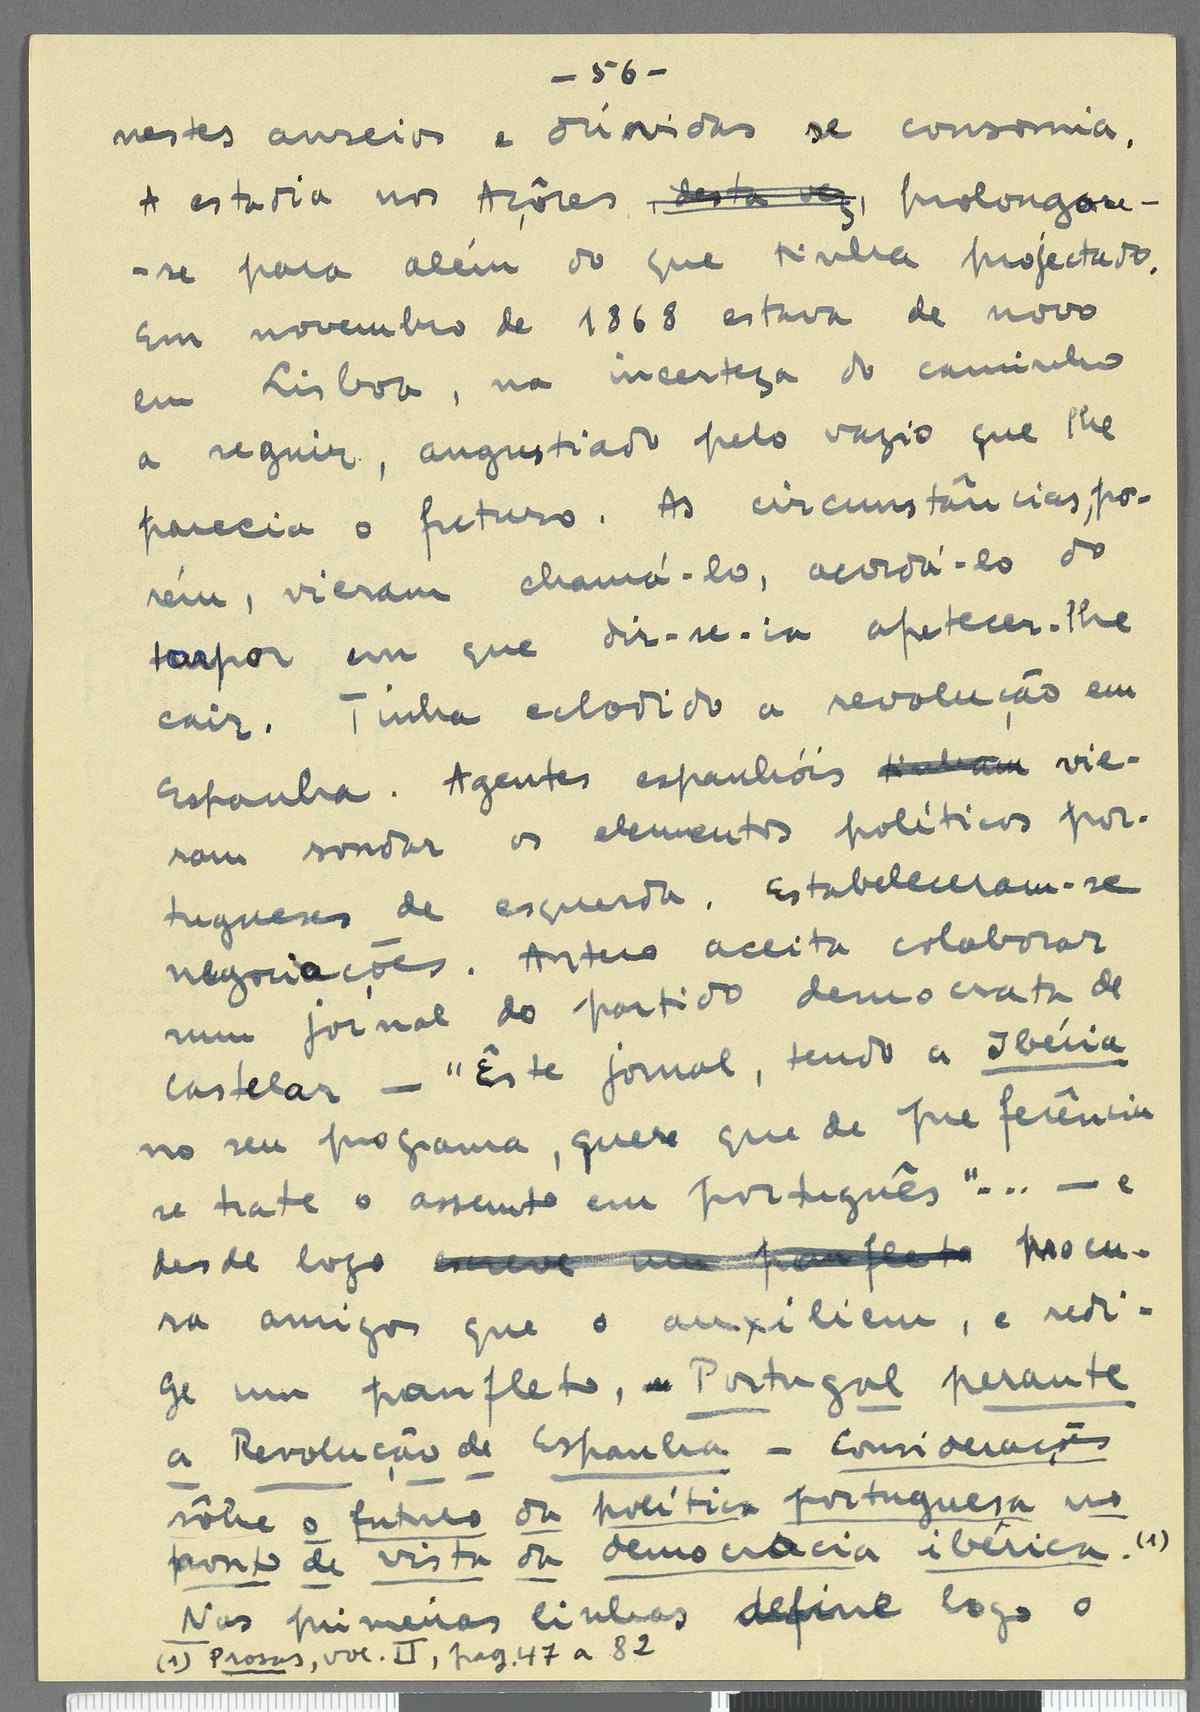 - 56 -
nestes anseios e dúvidas se consomia.
A estadia nos Açôres , desta vez, prolongou-
-se para além do que tinha projectado.
Em novembro de 1868 estava de novo
em Lisboa, na incerteza do caminho
a seguir, angustiado pelo vazio que lhe
parecia o futuro. As circunstâncias, po-
rém, vieram chamá-lo, acordá-lo do
torpor em que dir-se-ia apetecer-lhe
cair. Tinha eclodido a revolução em
Espanha. Agentes espanhóis tinham vie-
ram sondar os elementos políticos por-
tugueses de esquerda. Estabeleceram-se
negociações. Antero aceita colaborar
num jornal do partido democrata de
Castelar — "Êste jornal, tendo a Ibéria
no seu programa, quere que de preferência
se trate o assunto em português"... — e
desde logo escreve um panfleto procu-
ra amigos que o auxiliem, e redi-
ge um panfleto, Portugal perante
a Revolução de Espanha - Considerações
sôbre o futuro da política portuguesa no
ponto de vista da democracia ibérica. (1)
Nas primeiras linhas define logo o
(1) Prosas, vol. II, pag. 47 a 82